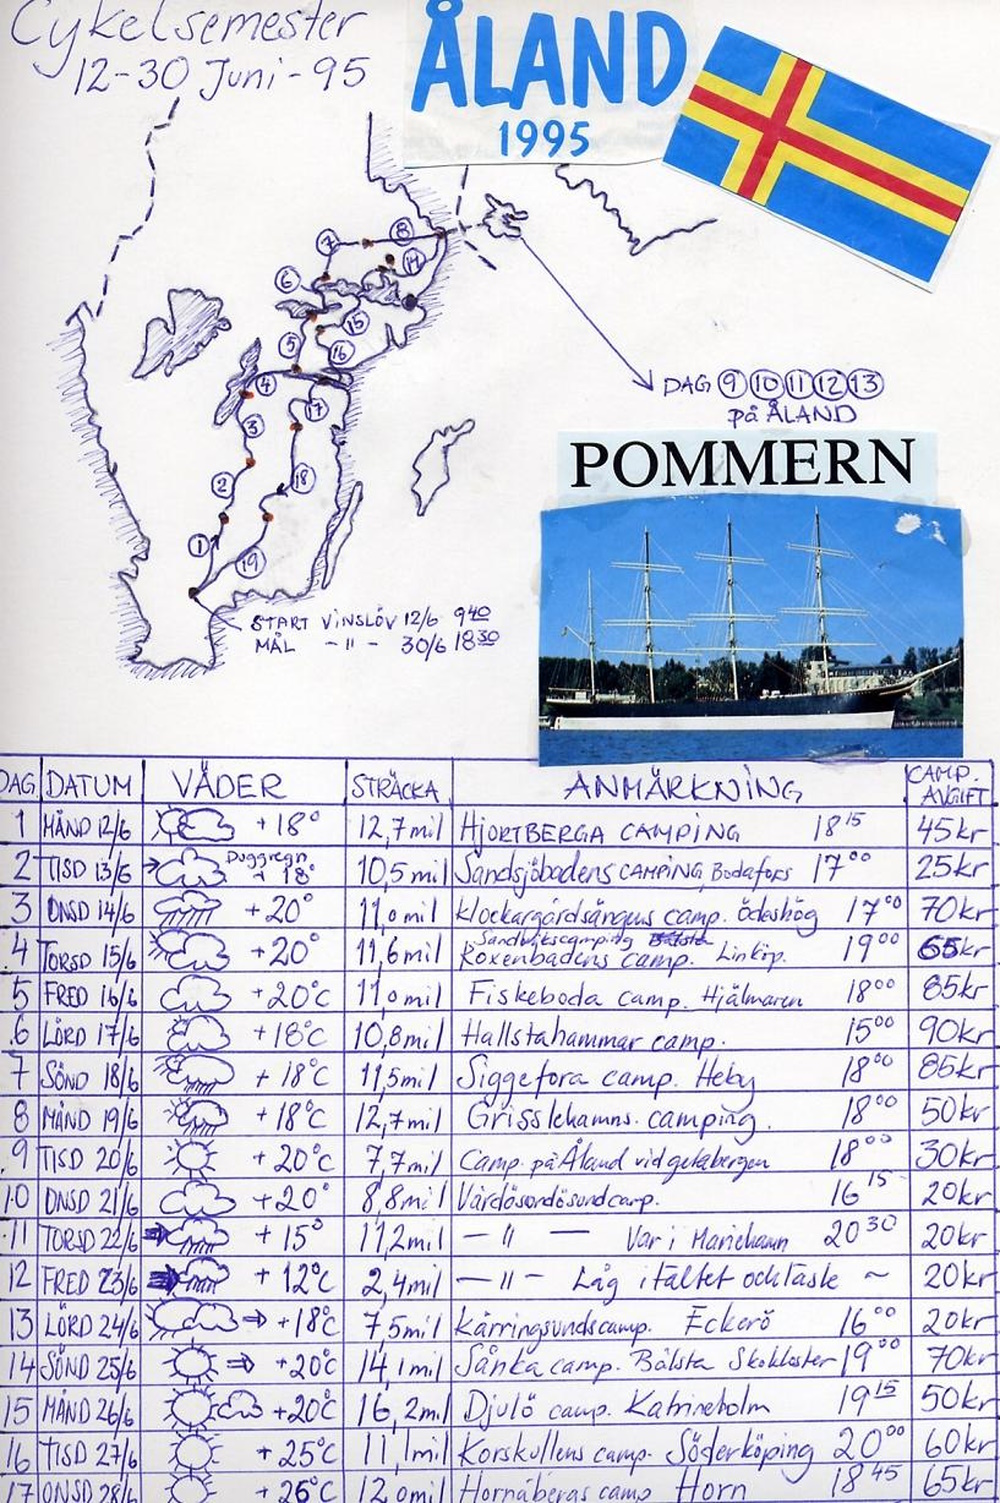 Cykelsemester
12-30 Juni-95
ÅLAND
1995
7 8
14
6
15
5
16
4
17
3
2
18
1
19
DAG 9 10 11 12 13
på ÅLAND
POMMERN
START VINSLÖV 12/6 9 40
MÅL - " - 30/6 18 30
DAG DATUM VÄDER STRÄCKA ANMÄRKNING CAMP. AVGIFT
1 MÅND 12/6 +18° 12,7 mil HJORTBERGA CAMPING 18 15 45 kr
2 TISD 13/6 Duggregn 18° 10,5 mil Sandsjöbadens CAMPING, Bodafors 17 00 25 kr
3 ONSD 14/6 +20° 11,0 mil Klockargårdsängens camp. Ödeshög 17 00 70 kr
4 TORSD 15/6 +20° 11,6 mil Sandvikscamping Roxenbadens camp. Linköp. 19 00 65 kr
5 FRED 16/6 +20°C 11,0 mil Fiskeboda camp. Hjälmaren 18 00 85 kr
6 LÖRD 17/6 +18°C 10,8 mil Hallstahammar camp. 15 00 90 kr
7 SÖND 18/6 +18°C 11,5 mil Siggefora camp. Heby 18 00 85 kr
8 MÅND 19/6 +18°C 12,7 mil Grisslehamns. camping. 18 00 50 kr
9 TISD 20/6 +20°C 7,7 mil Camp. på Åland vid getabergen 18 00 30 kr
10 ONSD 21/6 +20° 8,8 mil 16 15 20 kr
11 TORSD 22/6 +15° 11,2 mil - " - Var i Mariehamn 20 30 20 kr
12 FRED 23/6 +12°C 2,4 mil - " - Låg i tältet och läste ~ 20 kr
13 LÖRD 24/6 +18°C 7,5 mil Kärringsundscamp. Eckerö 16 00 20 kr
14 SÖND 25/6 +20°C 14,1 mil Sånka camp. Bålsta Skokloster 19 00 70 kr
15 MÅND 26/6 +20°C 16,2 mil Djulö camp. Katrineholm 19 15 50 kr
16 TISD 27/6 +25°C 11,1 mil Korskullens camp. Söderköping 20 00 60 kr
17 ONSD 28/6 +26°C 12,0 mil Hornåbergs camp Horn 18 45 65 kr